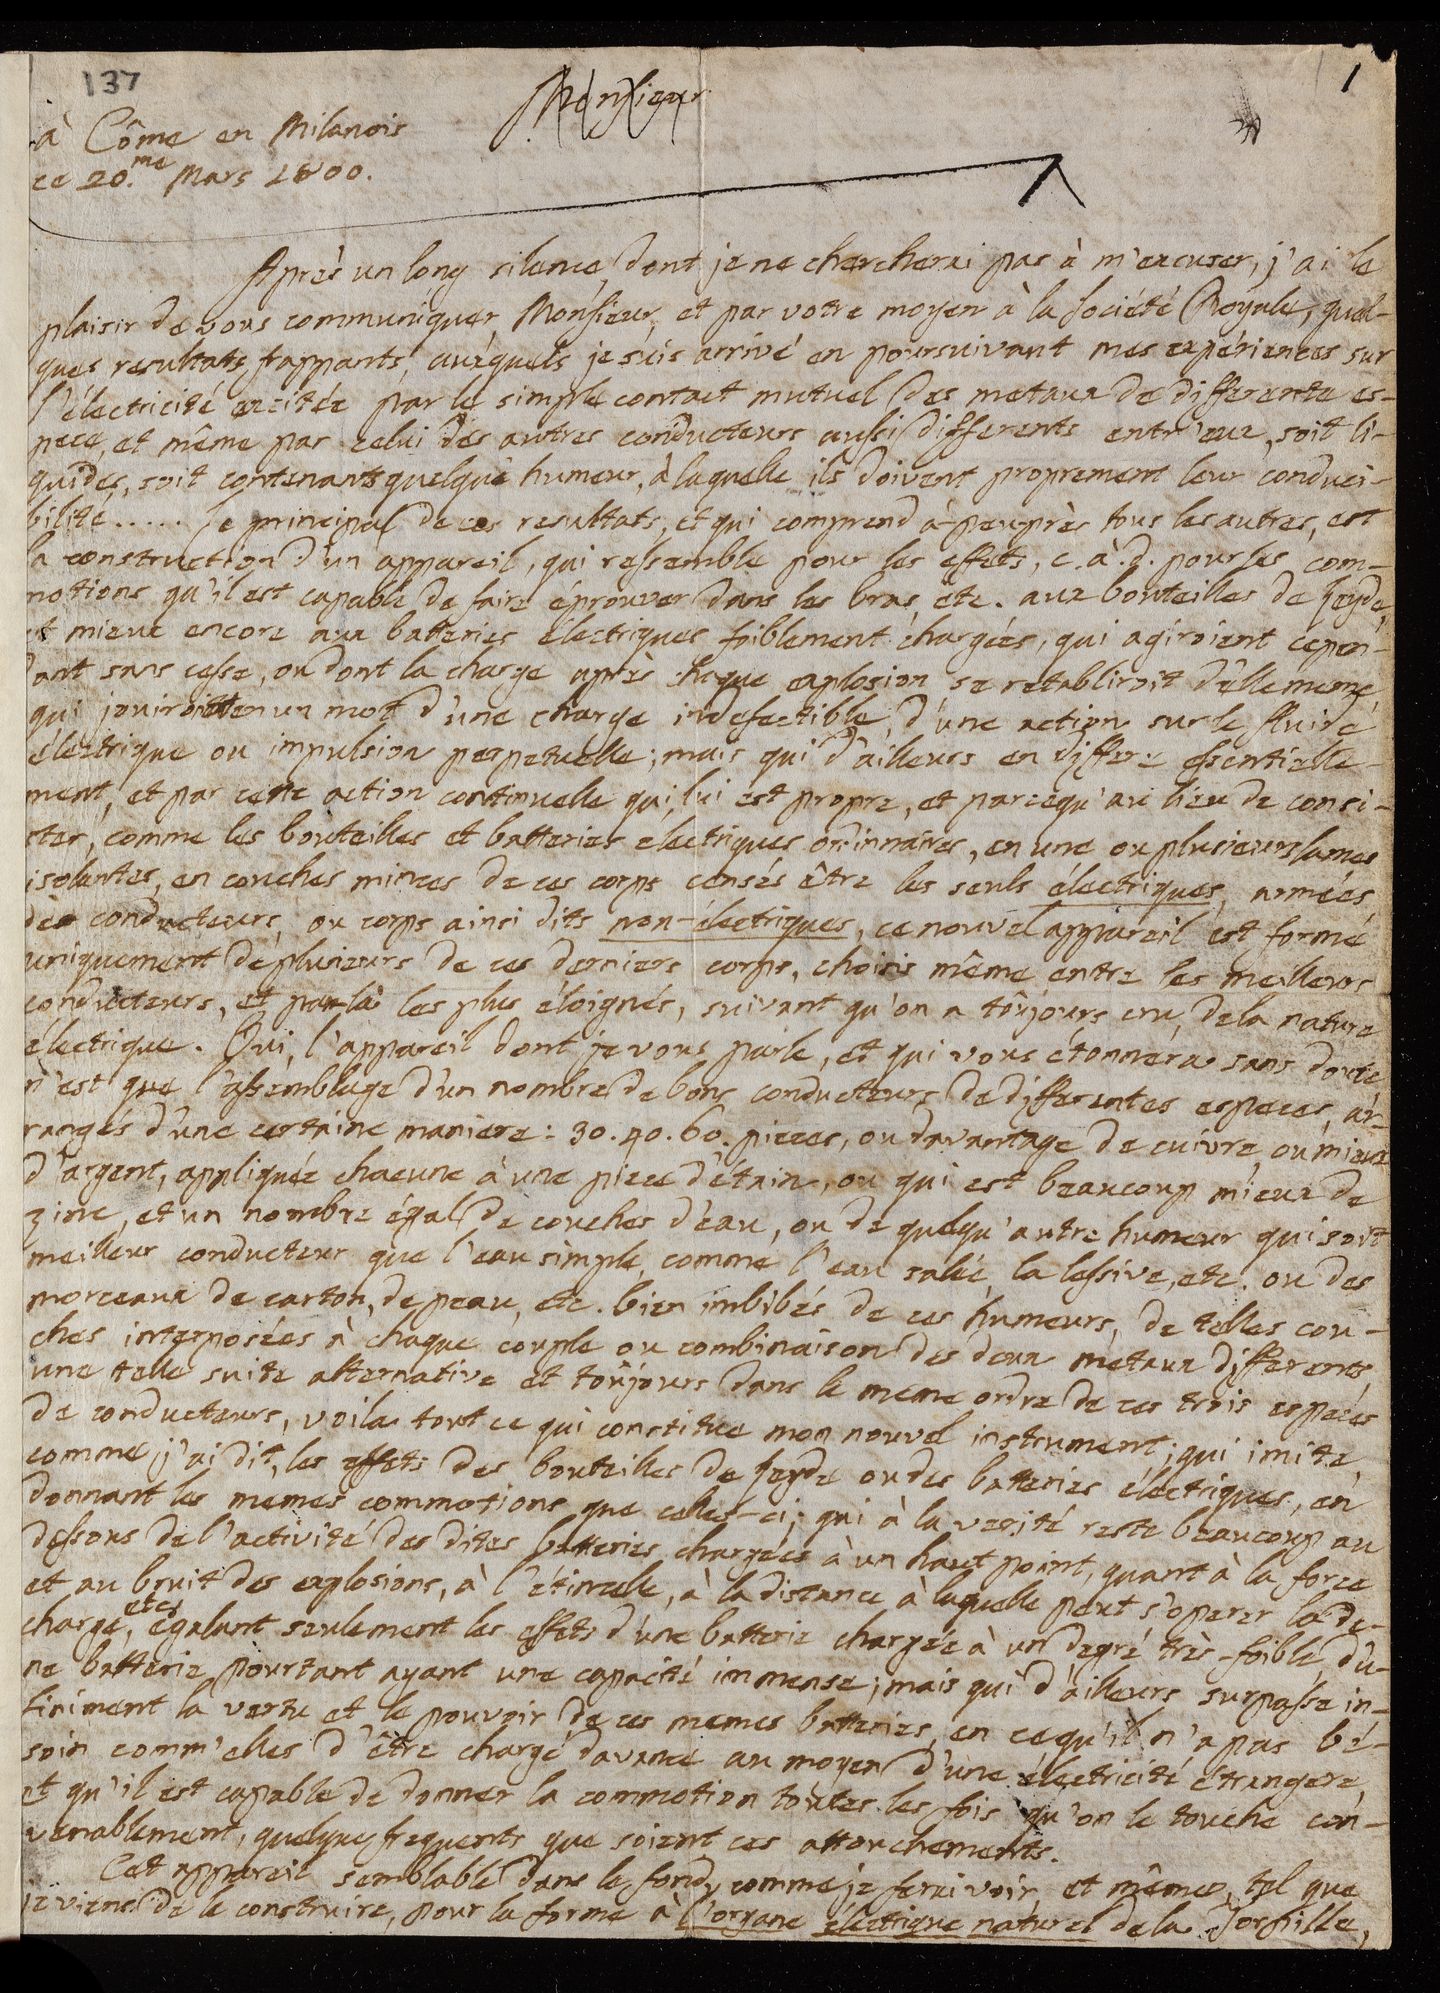 137
1
Monsieur
à Côme en Milanois
ce 20.me Mars 1800.
Après un long silence, dont je ne chercherai pas à m'excuser, j'ai le
plaisir de vous communiquer, Monsieur, et par votre moyen à la Société Royale, quel-
ques resultats frappants, auxquels je suis arrivé en poursuivant mes expériences sur
l'électricité excitée par le simple contact mutuel des metaux de differente es-
pece, et même par celui des autres conducteurs aussi differents entr'eux, soit li-
quides, soit contenants quelque humeur, à laquelle ils doivent proprement leur conduci-
bilité..... Le principal de ces resultats, et qui comprend à-peu-près tous les autres, est
la construction d'un appareil, qui ressemble pour les effets, c. à. d. pour les com-
motions qu'il est capable de faire éprouver dans les bras, etc. aux bouteilles de Leyde,
et mieux encore aux batteries électriques foiblement chargées, qui agiroient cepen-
dant sans cesse, ou dont la charge après chaque explosion se retabliroit d'elle meme,
qui jouiroit en un mot d'une charge indefectible, d'une action sur le fluide
électrique ou impulsion perpetuelle; mais qui d'ailleurs en differe essentielle-
ment, et par cette action continuelle qui lui est propre, et parcequ'au lieu de consi-
ster, comme les bouteilles et batteries electriques ordinnaires, en une ou plusieurs lames
isolantes, en couches minces de ces corps censés être les seuls électriques, armées
de conducteurs, ou corps ainsi dits non-électriques, ce nouvel appareil est formé
uniquement de plusieurs de ces derniers corps, choisis même entre les meilleurs
conducteurs, et par-là les plus éloignés, suivant qu'on a toûjours cru, de la nature
électrique. Oui, l'appareil dont je vous parle, et qui vous étonnera sans doute
n'est que l'assemblage d'un nombre de bons conducteurs de differentes especes, ar-
rangés d'une certaine maniere: 30. 40. 60. pieces, ou davantage de cuivre, ou mieux
d'argent, appliquée chacune à une piece d'étain, ou qui est beaucoup mieux de
zinc, et un nombre égal de couches d'eau, ou de quelqu'autre humeur qui soit
meilleur conducteur que l'eau simple, comme l'eau salée la lessive, etc. ou des
morceaux de carton, de peau, etc. bien imbibés de ces humeurs, de telles cou-
ches interposées à chaque couple ou combinaison des deux metaux differents,
une telle suite alternative et toûjours dans le meme ordre de ces trois especes
de conducteurs, voila tout ce qui constitue mon nouvel instrument; qui imite,
comme j'ai dit, les effets des bouteilles de Leyde ou des batteries électriques, en
donnant les memes commotions que celles-ci; qui à la verité reste beaucoup au
dessous de l'activité des dites batteries chargées à un haut point, quant à la force
et au bruit des explosions, à l'étincelle, à la distance à laquelle peut s'operer la de-
charge, etc, égalant seulement les effets d'une batterie chargée à un degré très-foible, d'u-
ne batterie pourtant ayant une capacité immense; mais qui d'ailleurs surpasse in-
finiment la vertu et le pouvoir de ces memes batteries, en ce qu'il n'a pas be-
soin comm'elles d'être chargé d'avance au moyen d'une électricité étrangere,
et qu'il est capable de donner la commotion toutes les fois qu'on le touche con-
venablement, quelque frequents que soient ces attouchements.
Cet appareil semblable dans le fond, comme je ferai voir, et même, tel que
je viens de le construire, pour la forme à l'organe électrique naturel de la Torpille,